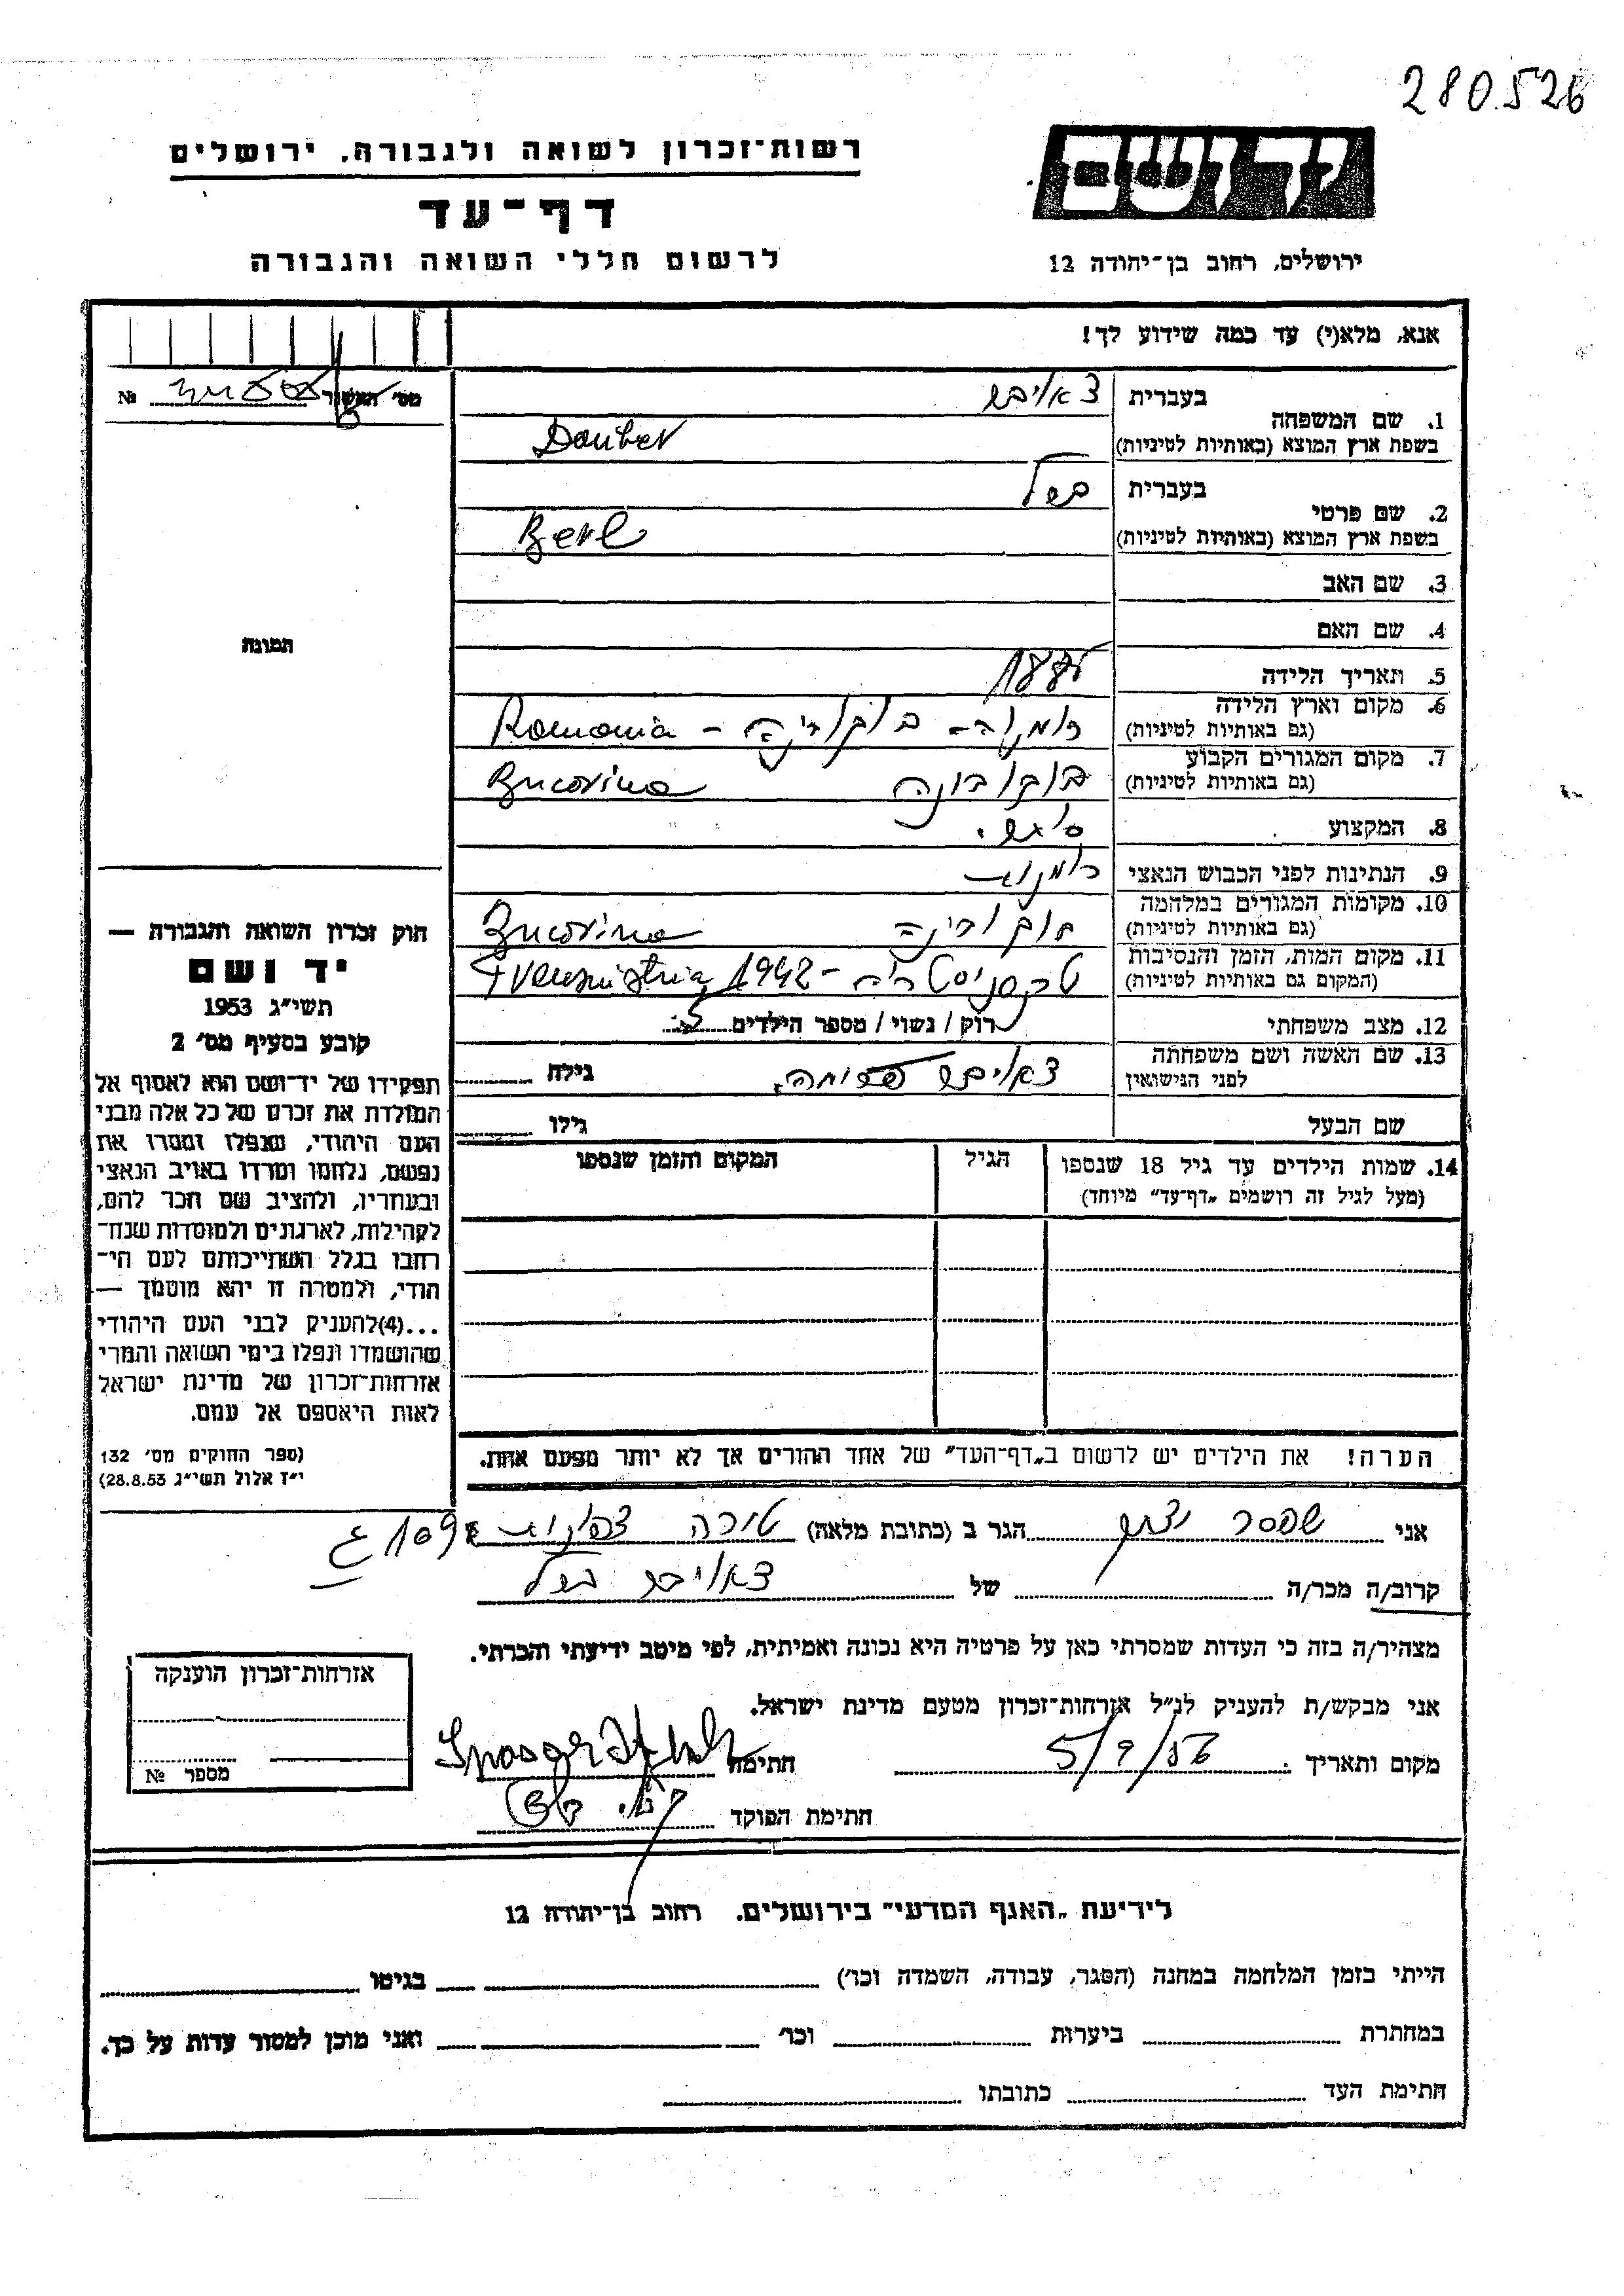 280.526
יד ושם
רשות־זכרון לשואה ולגבורה, ירושלים
דף־עד
לרשום חללי השואה והגבורה
ירושלים, רחוב בן־יהודה 12
אנא, מלא(י) עד כמה שידוע לך!
מס׳ №
1. שם המשפחה
בעברית דאובר
בשפת ארץ המוצא (באותיות לטיניות) Dauber
2. שם פרטי
בעברית ברל
בשפת ארץ המוצא (באותיות לטיניות) Berl
3. שם האב
4. שם האם
5. תאריך הלידה
6. מקום וארץ הלידה
(גם באותיות לטיניות) רומניה – בוקובינה – Romania
7. מקום המגורים הקבוע
(גם באותיות לטיניות) בוקובינה Bucovina
8. המקצוע סוחר.
9. הנתינות לפני הכבוש הנאצי רומנית
10. מקומות המגורים במלחמה
(גם באותיות לטיניות) בוקובינה Bucovina
11. מקום המות, הזמן והנסיבות
(המקום גם באותיות לטיניות) טרנסניסטריה – 1942
12. מצב משפחתי רוק / נשוי / מספר הילדים 5
13. שם האשה ושם משפחתה
לפני הנישואין דאובר גילה
שם הבעל גילו
14. שמות הילדים עד גיל 18 שנספו
(מעל לגיל זה רושמים „דף־עד” מיוחד)
הגיל
המקום והזמן שנספו
הערה! את הילדים יש לרשום ב„דף־העד” של אחד ההורים אך לא יותר מפעם אחת.
תמונה
חוק זכרון השואה והגבורה —
יד ושם
תשי״ג 1953
קובע בסעיף מס׳ 2
תפקידו של יד־ושם הוא לאסוף אל
המולדת את זכרם של כל אלה מבני
העם היהודי, שנפלו ומסרו את
נפשם, נלחמו ומרדו באויב הנאצי
ובעוזריו, ולהציב שם וזכר להם,
לקהילות, לארגונים ולמוסדות שנח־
רבו בגלל השתייכותם לעם הי־
הודי, ולמטרה זו יהא מוסמך —
...(4)להעניק לבני העם היהודי
שהושמדו ונפלו בימי השואה והמרי
אזרחות־זכרון של מדינת ישראל
לאות היאספם אל עמם.
(ספר החוקים מס׳ 132
י״ז אלול תשי״ג 28.8.53)
אני הגר ב (כתובת מלאה) טירה צפונית 109
קרוב/ה מכר/ה של דאובר ברל
מצהיר/ה בזה כי העדות שמסרתי כאן על פרטיה היא נכונה ואמיתית, לפי מיטב ידיעתי והכרתי.
אני מבקש/ת להעניק לנ״ל אזרחות־זכרון מטעם מדינת ישראל.
מקום ותאריך 5/9/56 חתימה
חתימת הפוקד
אזרחות־זכרון הוענקה
מספר №
לידיעת „האגף המדעי” בירושלים. רחוב בן־יהודה 12
הייתי בזמן המלחמה במחנה (הסגר, עבודה, השמדה וכו׳) בגיטו
במחתרת ביערות וכו׳ ואני מוכן למסור עדות על כך.
חתימת העד כתובתו